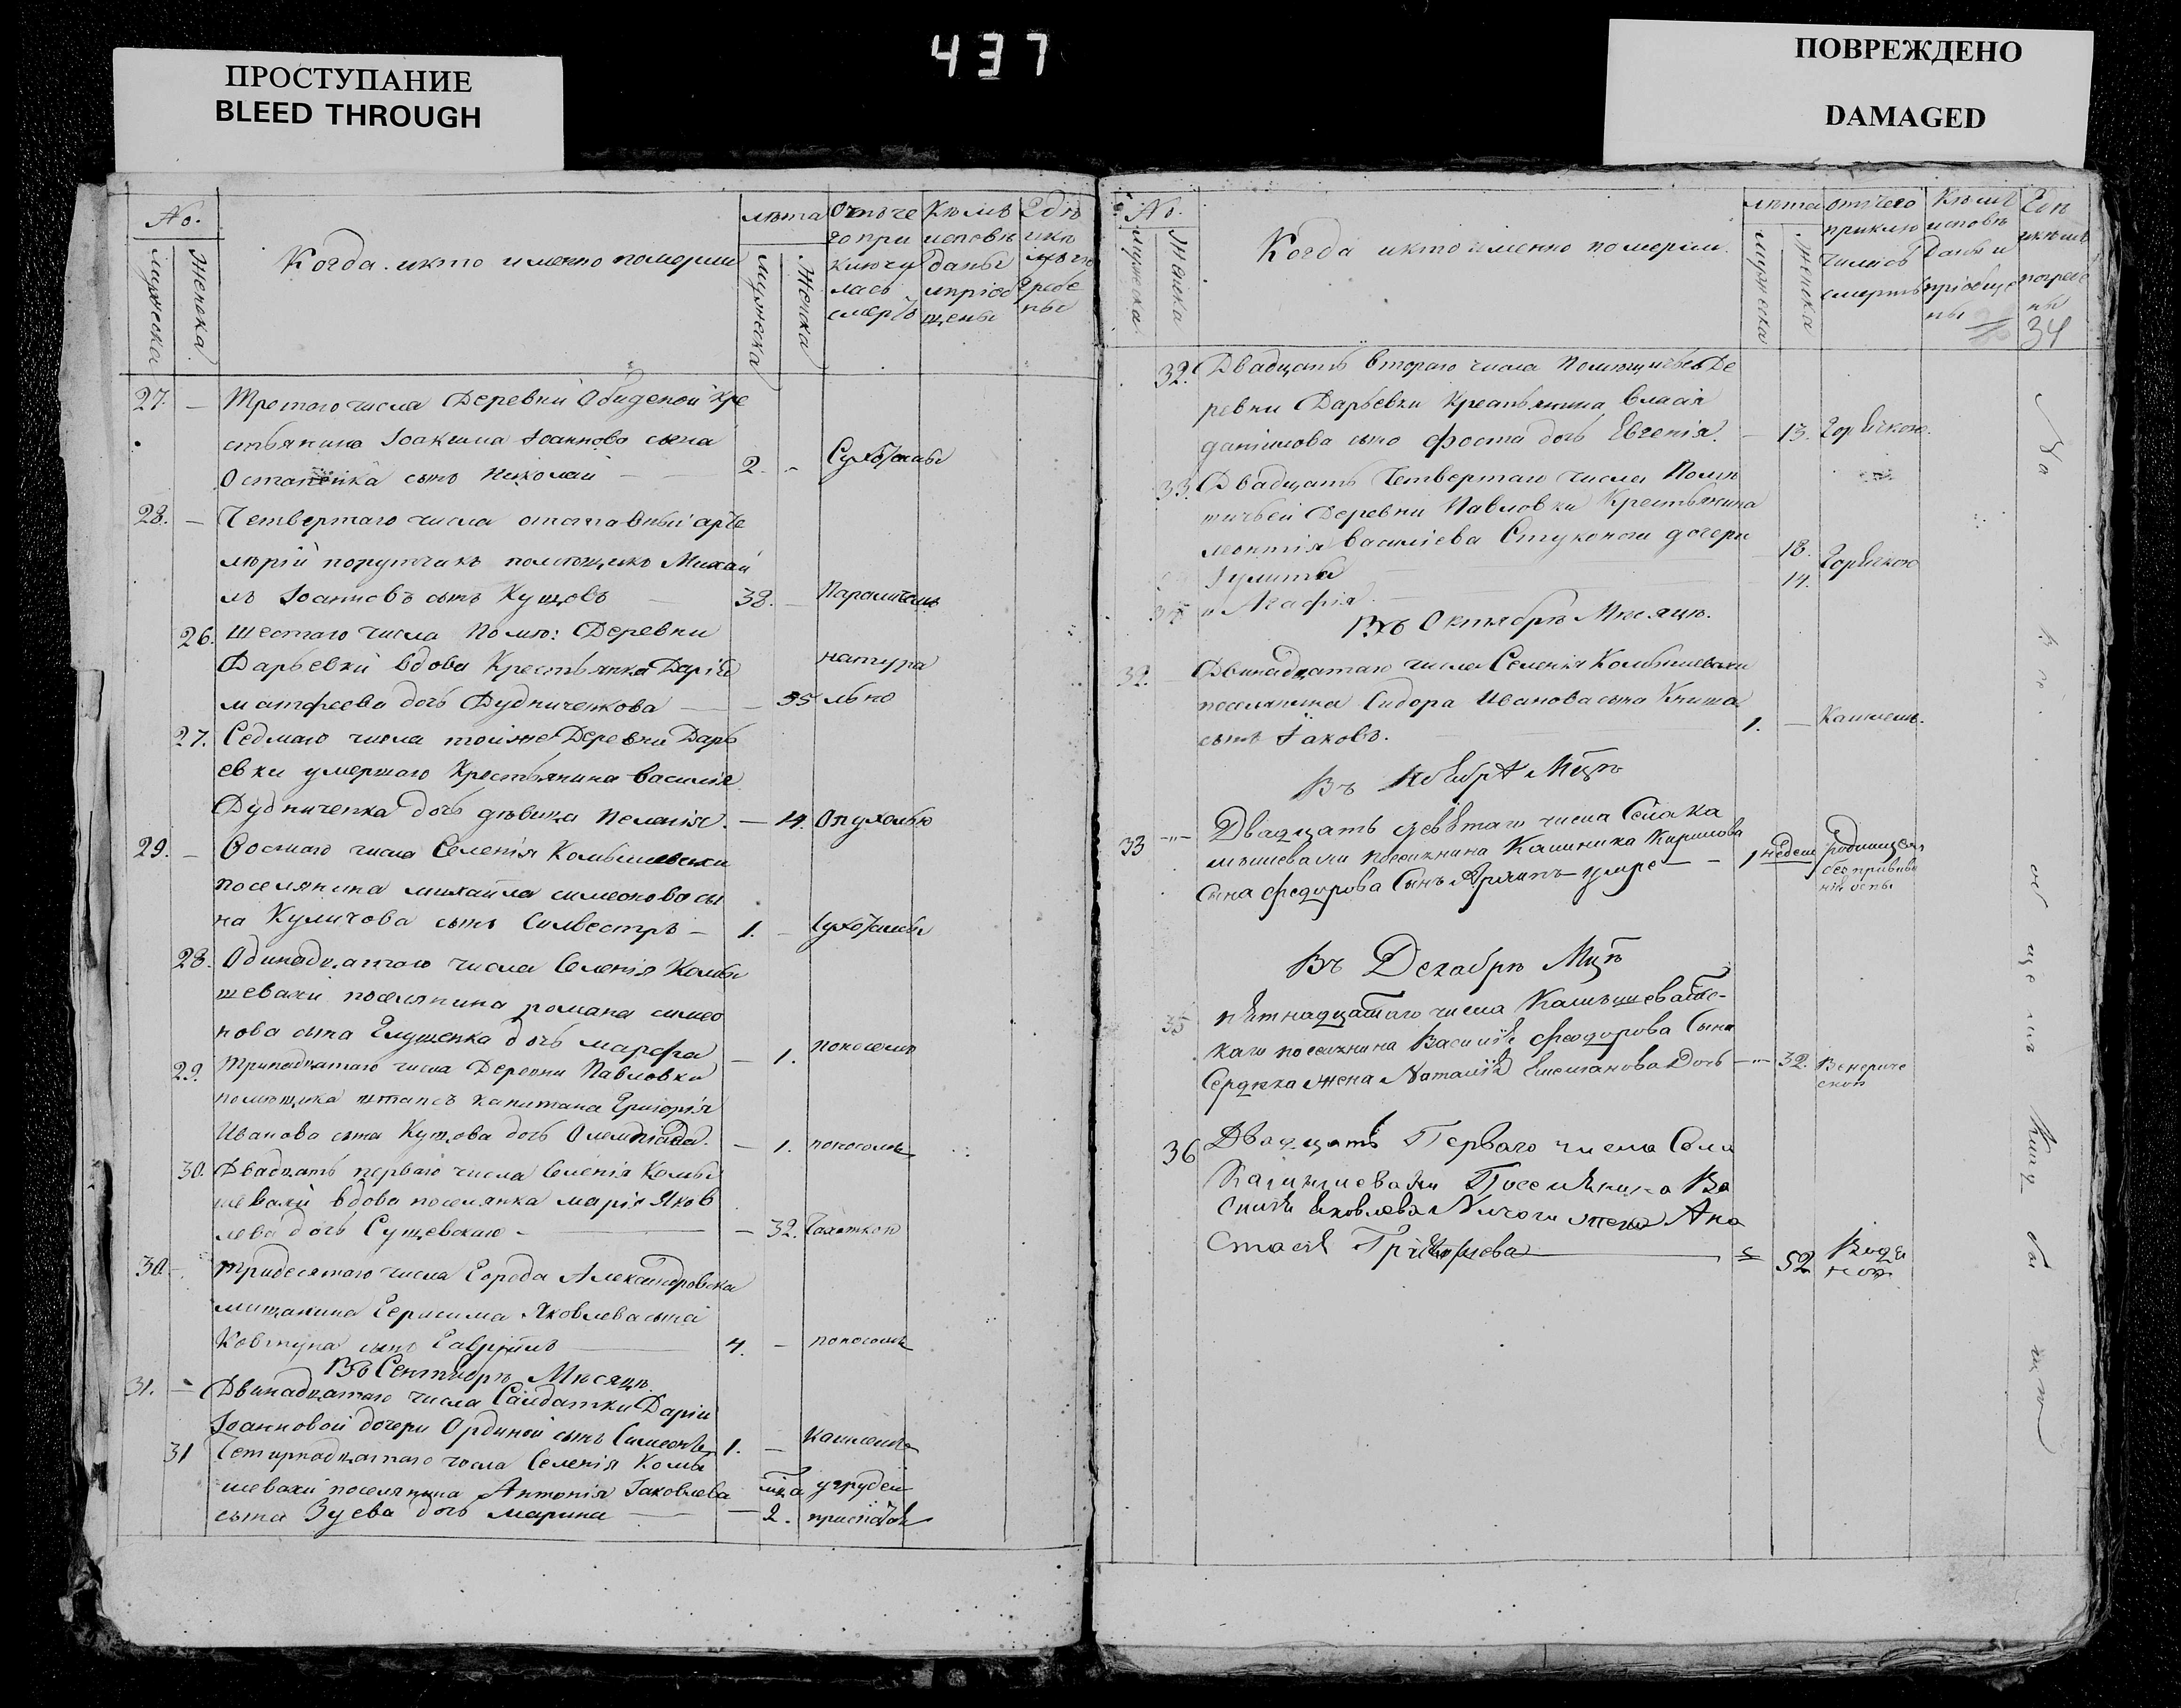 437
ПРОСТУПАНИЕ
BLEED THROUGH
ПОВРЕЖДЕНО
DAMAGED
No.
мужеска
женска
Когда и кто имянно померли
лѣта
мужеска
женска
Отъ че
го при
ключи
лась
смерть
Кѣмъ
исповѣ
даны
и пріоб
щены
Гдѣ
и кѣ
мъ по
гребе
ны
27. — Третого числа Деревни Обиденой кре
стьянина Іоакима Іоаннова сына
сынъ Николай — 2. -
28. — Четвертаго числа отставный арте
лерій порутчикъ помѣщикъ Михаи
лъ Іоанновъ сынъ Кущовъ 38. — Параличемъ
26. Шестаго числа Помѣ: Деревни
Дарьевки вдова Крестьянка Дарія
матфеева дочь Дудниченкова — — 55 натура
льно
27. Седмаго числа тойже Деревни Дарь
евки умершаго Крестьянина Василія
Дудниченка дочь дѣвица Пелагія. — 14. Опухолью
29. — Восмаго числа Селенія Комышевахи
поселянина михайла симеонова сы
на Куличова сынъ Силвестръ — 1. —
28. Одинадцатаго числа Селенія Комы
шевахи поселянина романа симео
нова сына дочь марфа — 1. поносомъ
29. Тринадцатаго числа Деревни Павловки
помѣщика штапсъ капитана Григорія
Иванова сына Кущова дочь Олимпіада. — 1. поносомъ
30. Двадцать перваго числа Селенія Комы
шевахи вдова поселянка марія Яков
лева дочь Сущевскаю — — 32. Чахоткою
30. — Тридесятаго числа Города Александровска
мищанина Герасима Яковлева сына
Ковтуна сынъ Гавріилъ 4. — поносомъ
Въ Сентябрѣ Мѣсяцѣ.
31. — Двинадцатаго числа Салдатки Даріи
Іоанновой дочери Ординой сынъ Симеонъ 1. — Кашлемъ
31 Четырнадцатаго числа Селенія Комы
шевахи поселянина Антонія Іаковлева
сына Зуева дочь марина — — 2. у грудей
No.
мужеска
женска
Когда и кто имянно померли.
лѣта
мужеска
женска
отъ чего
приклю
чилась
смерть
Кѣмъ
исповѣ
даны и
пріобще
ны
Гдѣ
и кѣмъ
погребе
ны
34
32. Двадцать втораго числа Помѣщичьей Де
ревни Дарьевки Крестьянина Власія
даніилова сына фоста дочь Евгенія. — 13. Горячкою.
33. Двадцать Четвертаго числа Помѣ
щичьей Деревни Павловки Крестьянина
леонтія василіева дочери
Іулита 18. Горячкою
34 и Агафія. 14.
Въ Октябрѣ Мѣсяцѣ.
32. — Двинадцатаго числа Селенія Комышевахи
поселянина Сидора Иванова сына Книша
сынъ Іаковъ. 1. — Кашлемъ.
Въ Ноябрѣ Мцѣ
33 — Двадцать девятаго числа Села Ка
мышевахи поселянина Калиника Кирилова
Сына федорова Сынъ умре — 1 недели
Въ Декабрѣ Мцѣ
35 пятнадцатаго числа Камышеватс-
каго поселянина Василія феодорова Сына
Сердюка жена Наталія Дочь — 32. Венериче
ской
36 Двадцать Перваго числа Села
Камышевахи Поселянина Ва
силия Яковлева жена Ана
стасия 52 Водя
ной